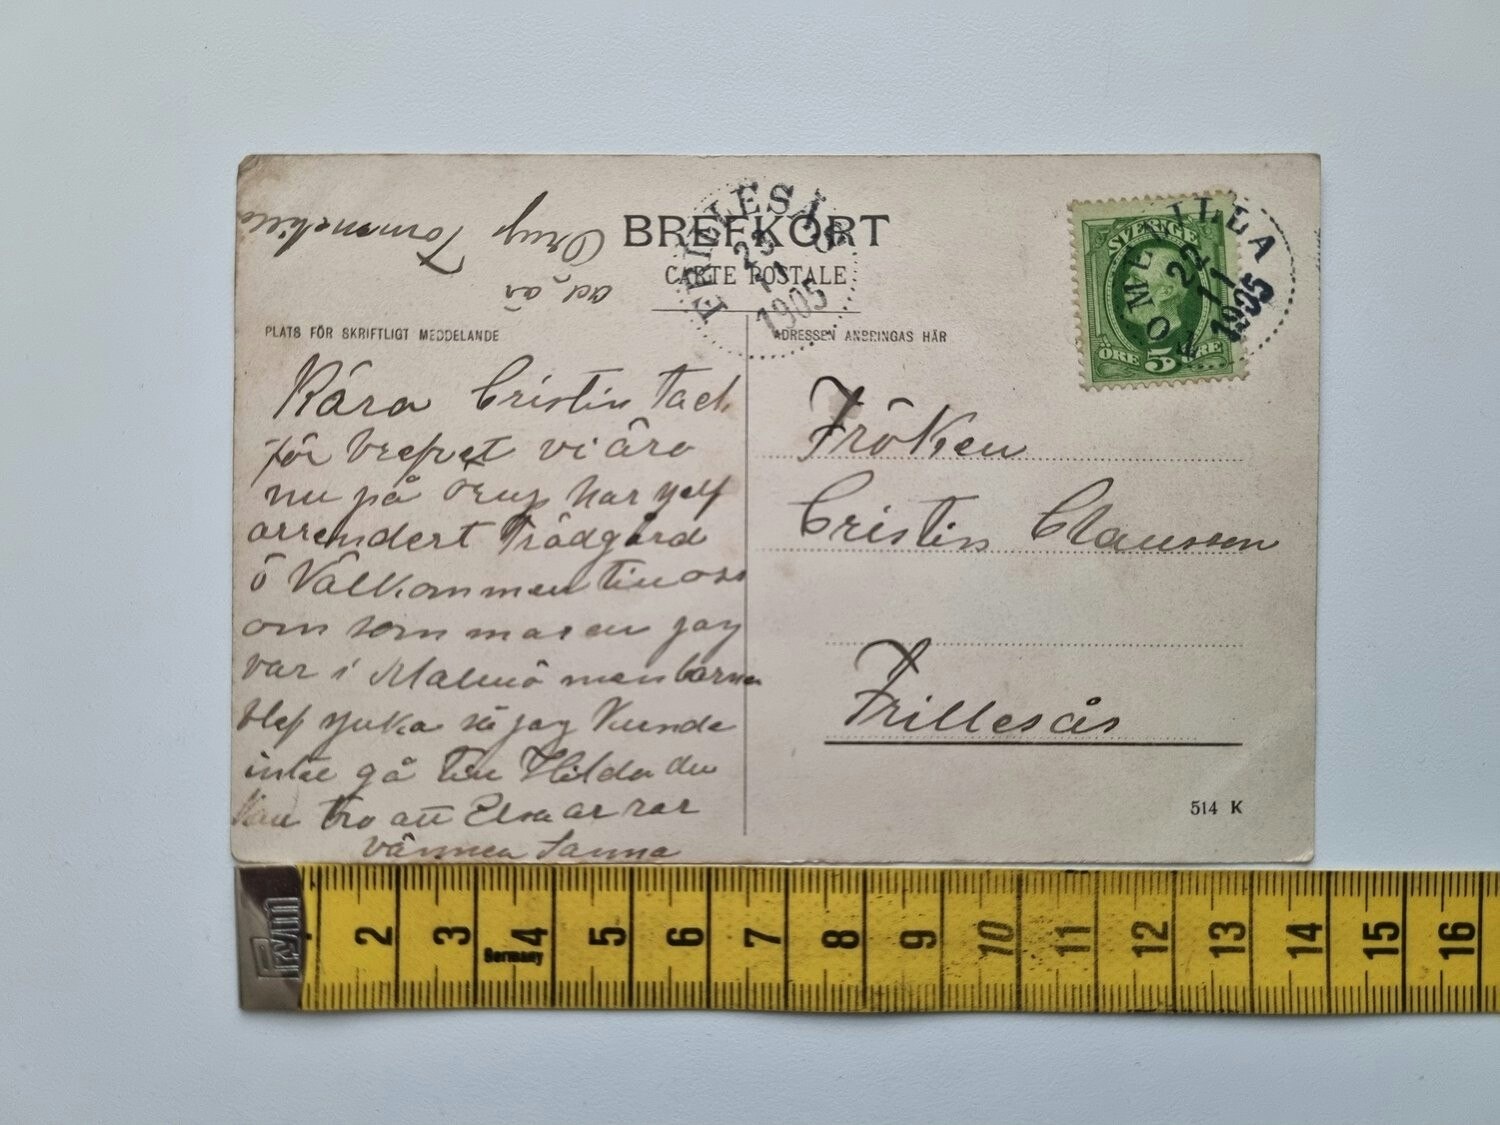 BREFKORT
CARTE POSTALE
PLATS FÖR SKRIFTLIGT MEDDELANDE
ADRESSEN ANBRINGAS HÄR
FRILLESÅS
23
11
1905
TOMELILLA
22
11
1905
SVERIGE
ÖRE 5 ÖRE
ad, är
Örup Tommelilla
Kära Cristin Tack
för brefvet vi äro
nu på Örup har sjelf
arrendert Trädgård
ö Välkommen till oss
om sommaren jag
var i Malmö men barnen
blef sjuka så jag kunde
intee gå till Hilda du
kan tro att Elsa är rar
vännen Sanna
Fröken
Cristin Clausson
Frillesås
514 K
2 3 4 5 6 7 8 9 10 11 12 13 14 15 16
Germany